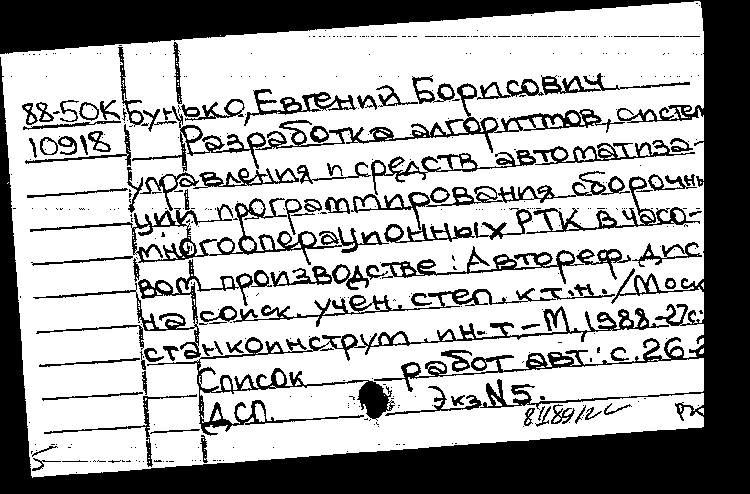 88-50К Бунько, Евгений Борисович
10918 Разработка алгоритмов, систем
управления и средств автоматиза-
ции программирования сборочн
многооперационных РТК в часо-
вом производстве: Автореф. дис
на соиск. учен. степ. к.т.н. /Моск
станкоинструм. ин-т.-М., 1988.-27с.:
Список работ авт.: с.26-2
ДСП. Экз.N5.
РК